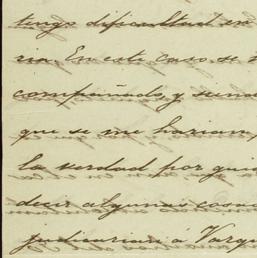 tengo dificultad en
ria. En este caso se
compañado, y
que se me harian,
la verdad por
decir algunas cosas
judicarian á Varg